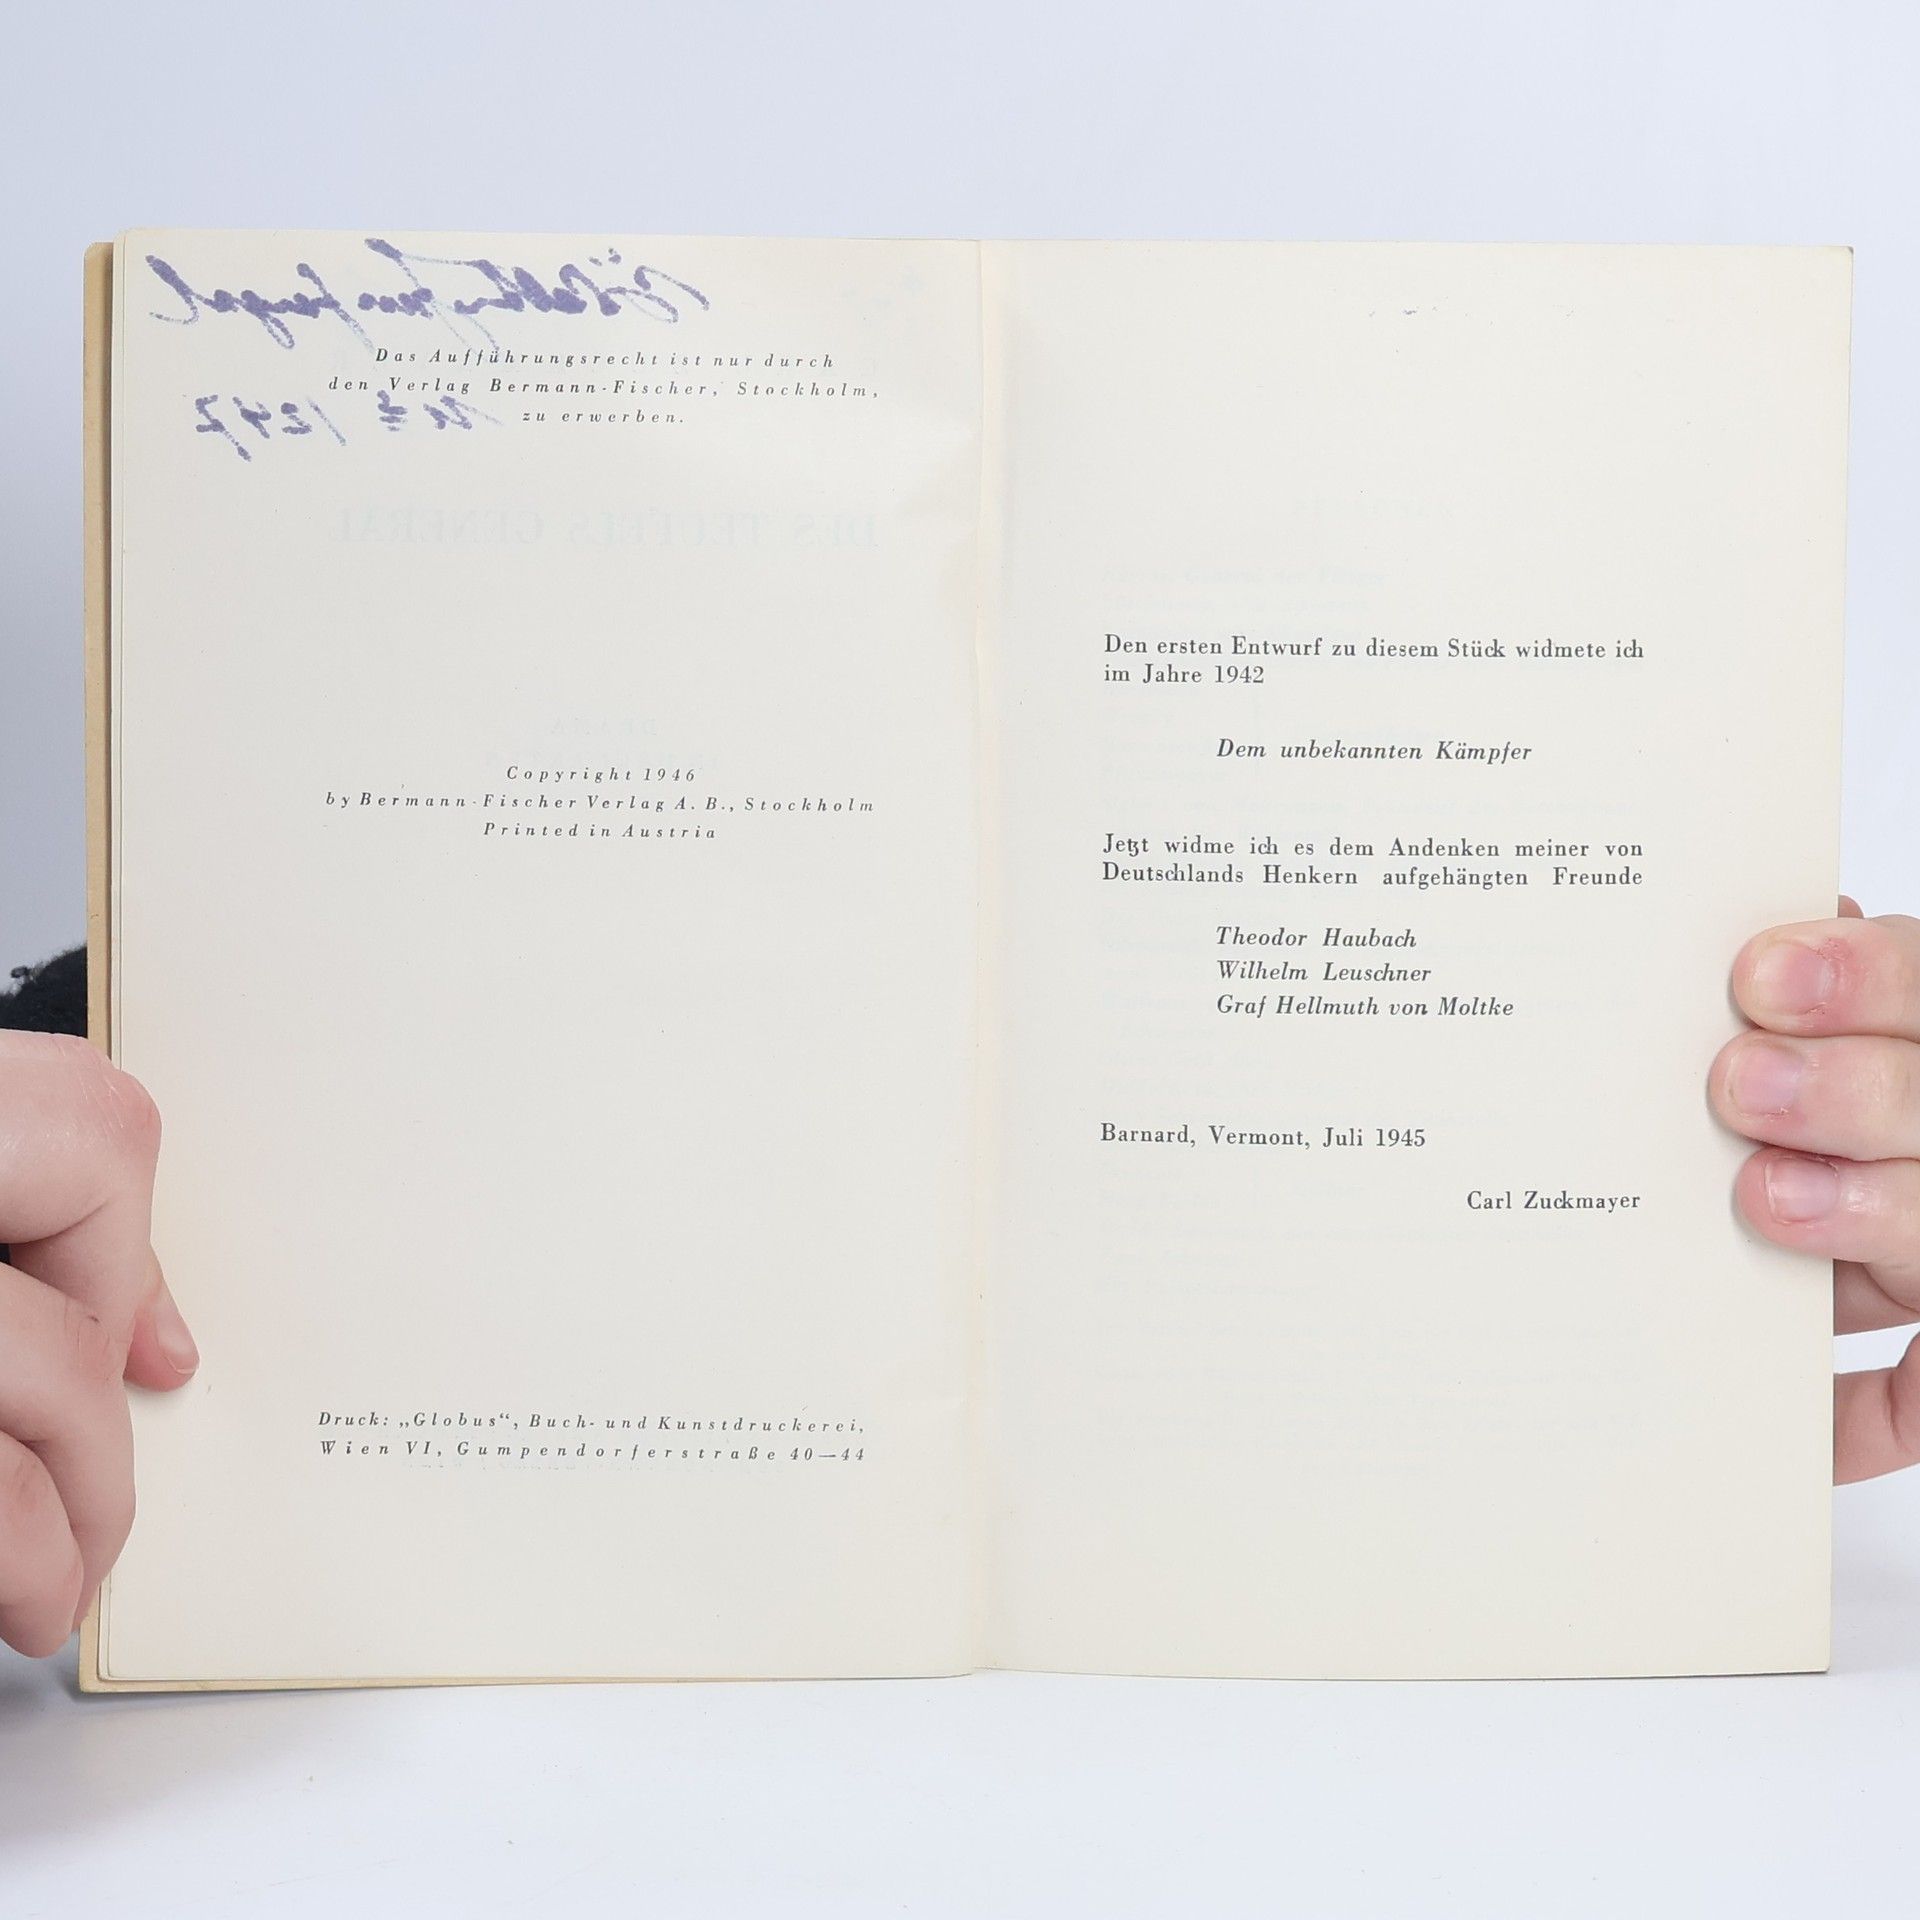 Das Aufführungsrecht ist nur durch
den Verlag Bermann-Fischer, Stockholm,
zu erwerben.
DES TEUFELS GENERAL
DRAMA
Copyright 1946
by Bermann-Fischer Verlag A. B., Stockholm
Printed in Austria
Druck: „Globus“, Buch- und Kunstdruckerei,
Wien VI, Gumpendorferstraße 40—44
Den ersten Entwurf zu diesem Stück widmete ich
im Jahre 1942
Dem unbekannten Kämpfer
Jetzt widme ich es dem Andenken meiner von
Deutschlands Henkern aufgehängten Freunde
Theodor Haubach
Wilhelm Leuschner
Graf Hellmuth von Moltke
Barnard, Vermont, Juli 1945
Carl Zuckmayer